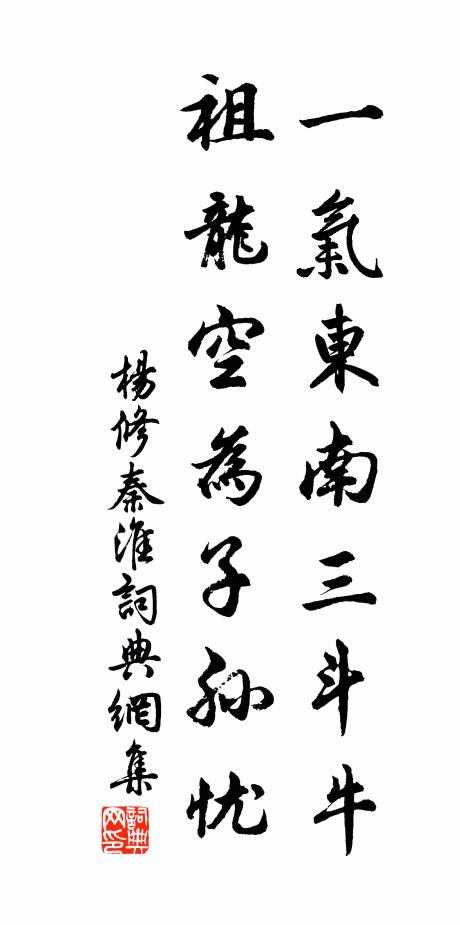 一氣東南三斗牛
祖龍空為子孫忧
楊修秦淮詞典網集
詞典网印